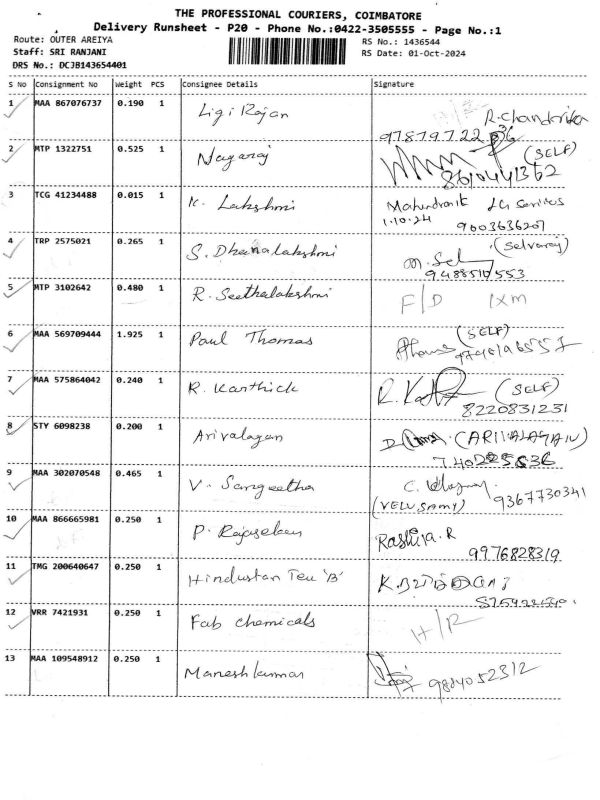 THE PROFESSIONAL COURIERS, COIMBATORE
Delivery Runsheet - P20 - Phone No.:0422-3505555 - Page No.:1
Route: OUTER AREIYA
RS No.: 1436544
Staff: SRI RANJANI
RS Date: 01-Oct-2024
DRS No.: DCJB143654401
S No Consignment No Weight PCS Consignee Details Signature
1 MAA 867076737 0.190 1 Ligi Rajan R. Chandrika
2 MTP 1322751 0.525 1 Nagaraj (SELF)
8610441362
3 TCG 41234488 0.015 1 K. Lakshmi
1.10.24 9003636207
4 TRP 2575021 0.265 1 S. Dhanalakshmi (Selvaraj)
9488510553
5 MTP 3102642 0.480 1 R. Seethalakshmi F/D IXM
6 MAA 569709444 1.925 1 Paul Thomas (SELF)
7 MAA 575864042 0.240 1 R. Karthick (SELF)
8220831231
8 STY 6098238 0.200 1 Arivalagan
9 MAA 302070548 0.465 1 V. Sangeetha
(VELUSAMY) 9367730341
10 MAA 866665981 0.250 1 P. Rajasekar
9976828319
11 TMG 200640647 0.250 1 Hindustan Teu 'B'
12 VRR 7421931 0.250 1 Fab chemicals H/R
13 MAA 109548912 0.250 1 Maneshkumar 9884052312